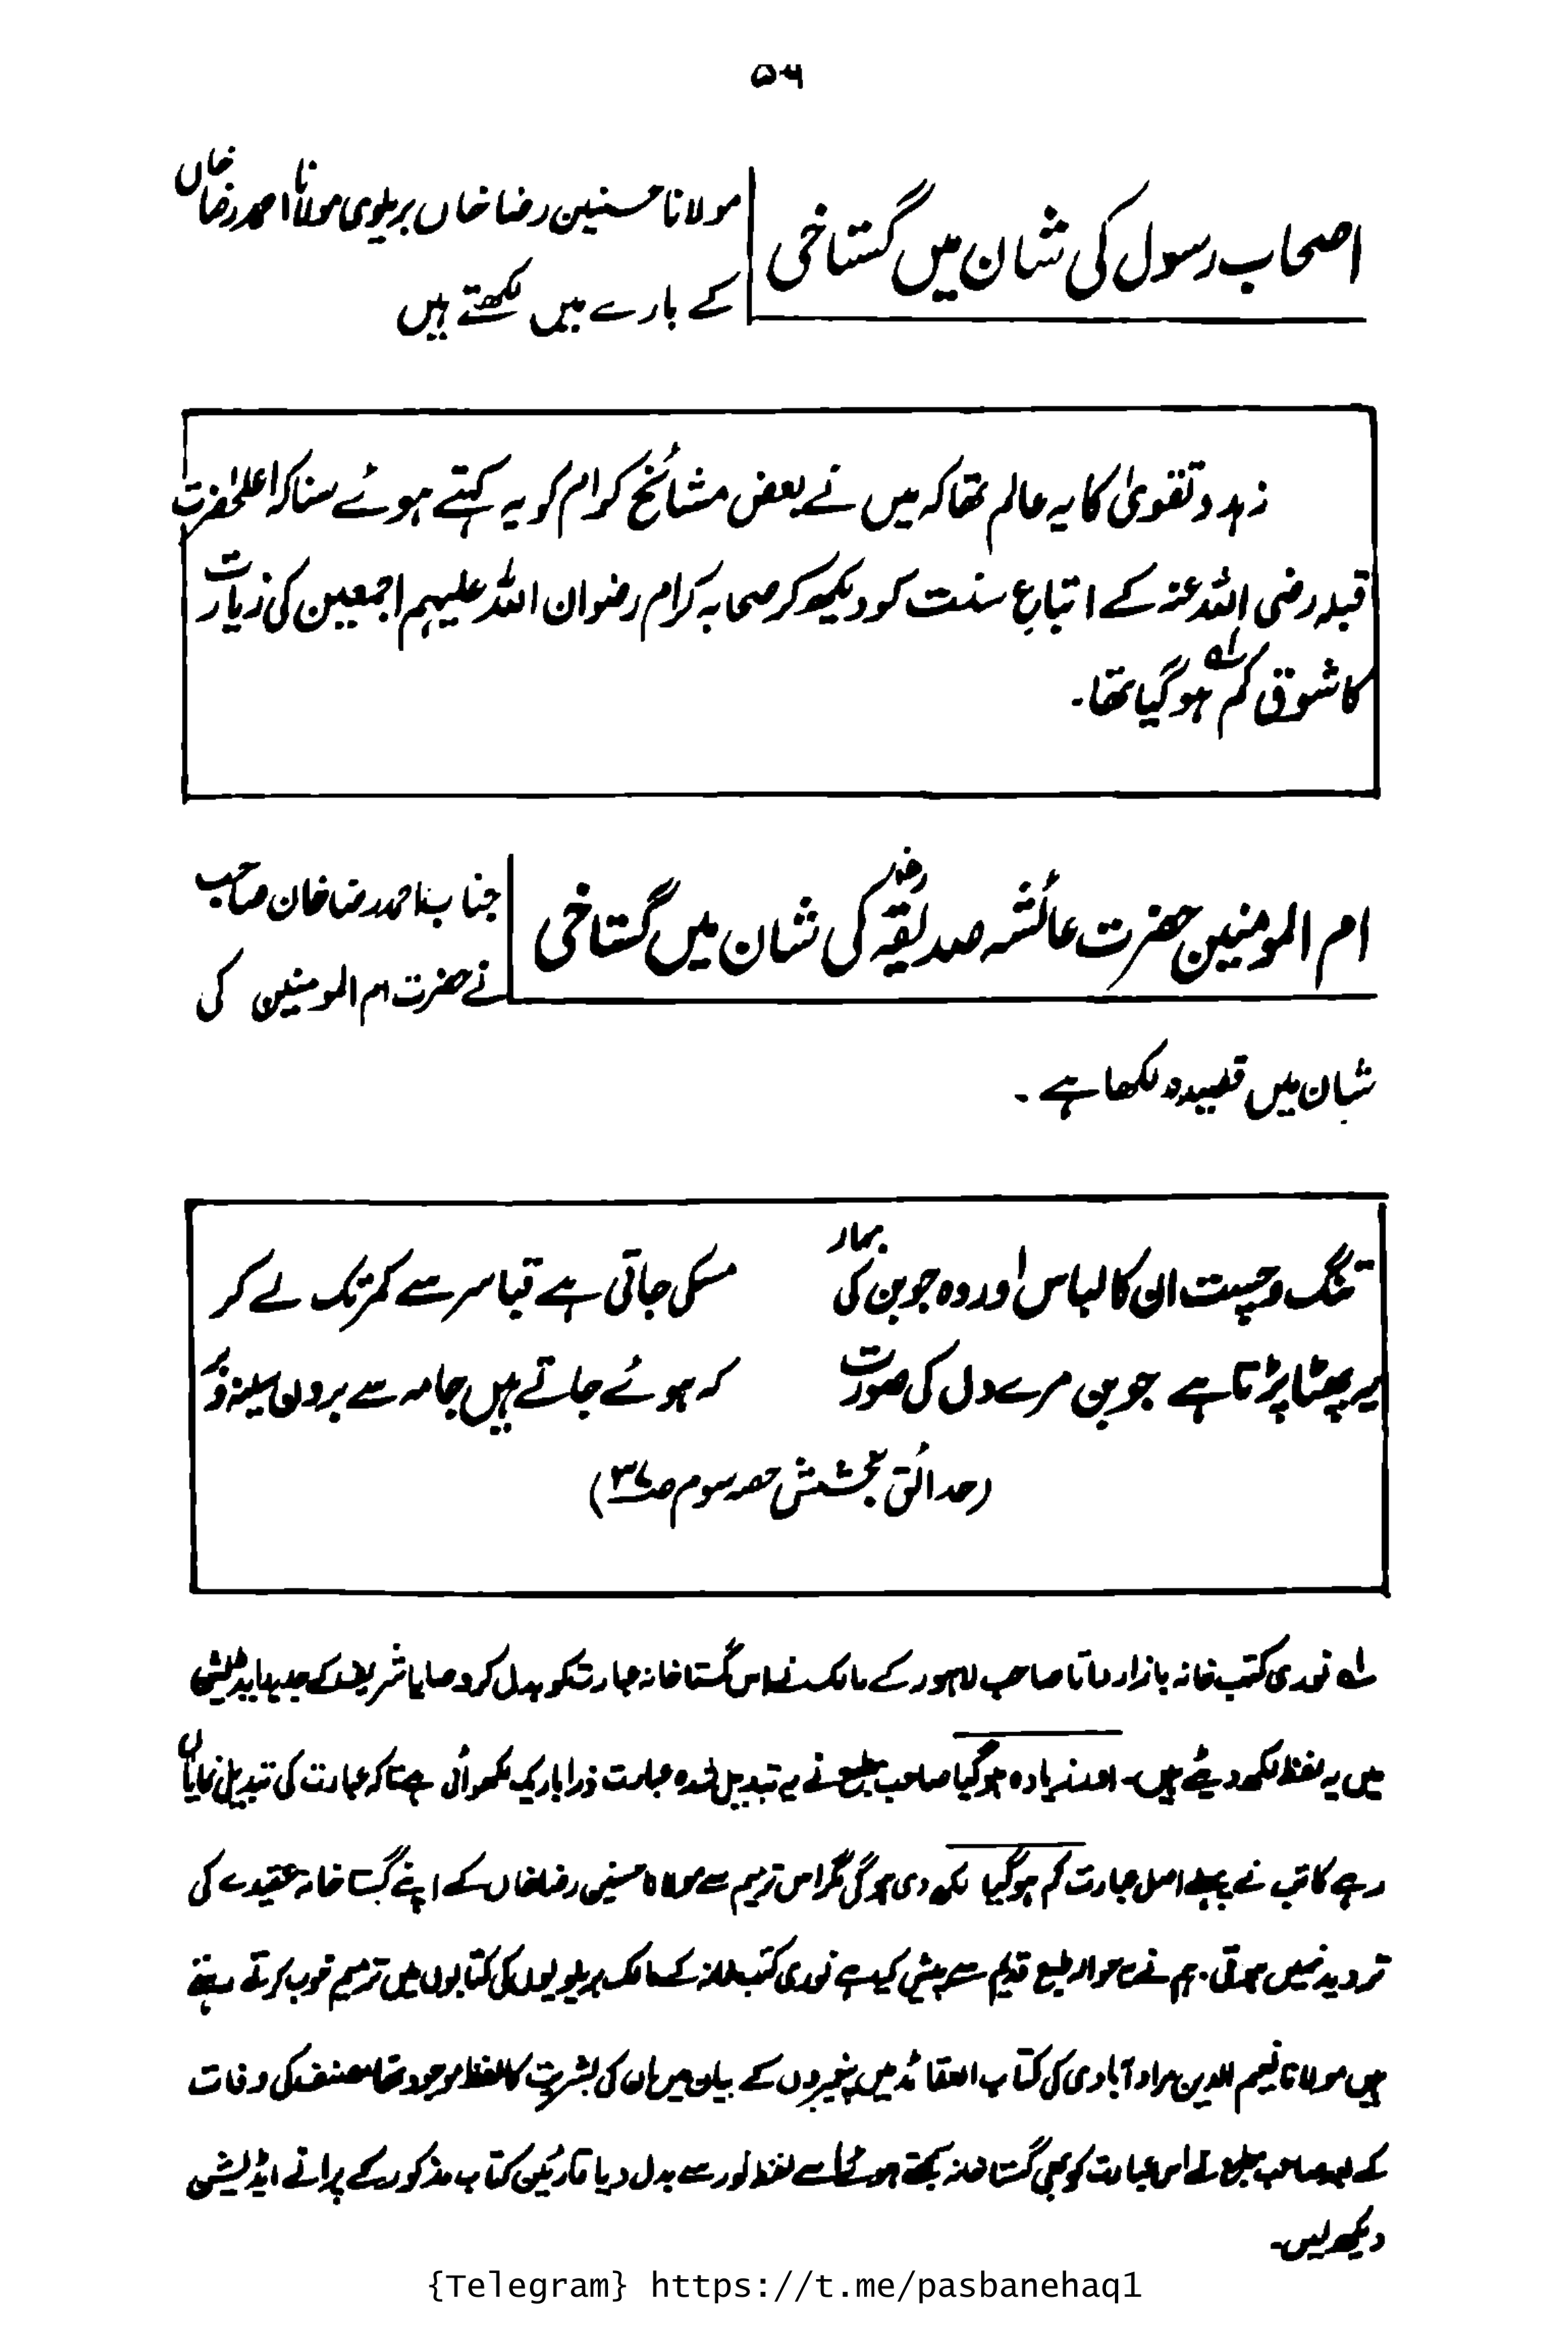 ۵۶
اصحاب رسول کی شان میں گستاخی
مولانا حسنین رضا خاں بریلوی مولانا احمد رضا خاں
کے بارے میں لکھتے ہیں
زہد و تقویٰ کا یہ عالم تھا کہ میں نے بعض مشائخ کرام کو یہ کہتے ہوئے سنا کہ اعلحٰضرت
قبلہ رضی اللہ عنہ کے اتباعِ سنت کو دیکھ کر صحابہ کرام رضوان اللہ علیہم اجمعین کی زیارت
کا شوق کم ہو گیا تھا۔
ام المومنین حضرت عائشہ صدیقہؓ کی شان میں گستاخی
جناب احمد رضا خان صاحب
نے حضرت ام المومنین کی
شان میں قصیدہ لکھا ہے ۔
تنگ و چست ان کا لباس اور وہ جوبن کی بہار
مسکی جاتی ہے قبا سر سے کمر تک لے کر
یہ پھٹا پڑتا ہے جوبن مرے دل کی صورت
کہ ہوئے جاتے ہیں جامہ سے بروں سینہ و بر
(حدائق بخشش حصہ سوم ص۳۷)
لہ نوری کتب خانہ بازار داتا صاحب لاہور کے مالک نے اس گستاخانہ عبارت کو بدل کر وصایا شریف کے جدید ایڈیشن
میں یہ لفظ لکھ دیئے ہیں۔ اور زیادہ ہو گیا صاحب مطبع نے یہ تبدیل شدہ عبارت ذرا باریک لکھوائی ہے تاکہ عبارت کی تبدیلی نمایاں
رہے کاتب نے پہلے اصل عبارت کم ہو گیا لکھ دی ہو گی مگر اس ترمیم سے مولانا حسنین رضا خاں کے اپنے گستاخانہ عقیدے کی
تردید نہیں ہوتی۔ ہم نے حوالہ طبع قدیم سے پیش کیا ہے نوری کتب خانہ کے مالک بریلویوں کی کتابوں میں ترمیم خوب کرتے رہتے
ہیں مولانا نعیم الدین مراد آبادی کی کتاب العقائد میں پیغمبروں کے بیان میں ان کی بشریت کا لفظ موجود تھا مصنف کی وفات
کے بعد صاحب مطبع نے اس عبارت کو بھی گستاخانہ سمجھتے ہوئے اسے لفظ نور سے بدل دیا قارئین کتاب مذکور کے پرانے ایڈیشن
دیکھ لیں۔
{Telegram} https://t.me/pasbanehaq1